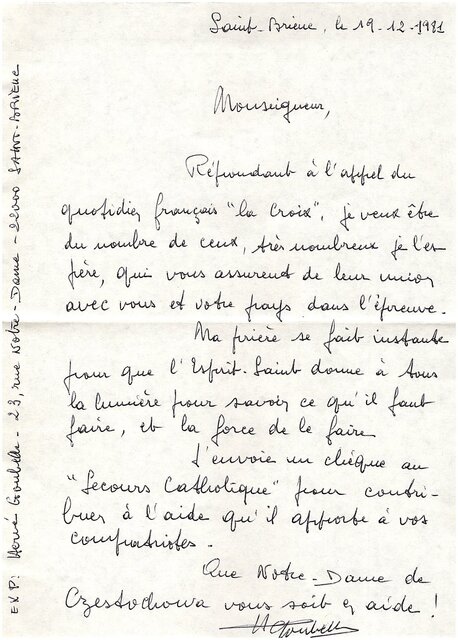 Saint-Brieuc, le 19-12-1981
Monseigneur,
Répondant à l'appel du
quotidien français "la Croix", je veux être
du nombre de ceux, très nombreux je l'es
père, qui vous assurent de leur union
avec vous et votre pays dans l'épreuve.
Ma prière se fait instante
pour que l'Esprit-Saint donne à tous
la lumière pour savoir ce qu'il faut
faire, et la force de le faire
J'envoie un chèque au
"Secours Catholique" pour contri-
buer à l'aide qu'il apporte à vos
compatriotes.
Que Notre-Dame de
Czestochowa vous soit en aide !
EXP: Hervé - 23, rue Notre-Dame - 22000 SAINT-BRIEUC